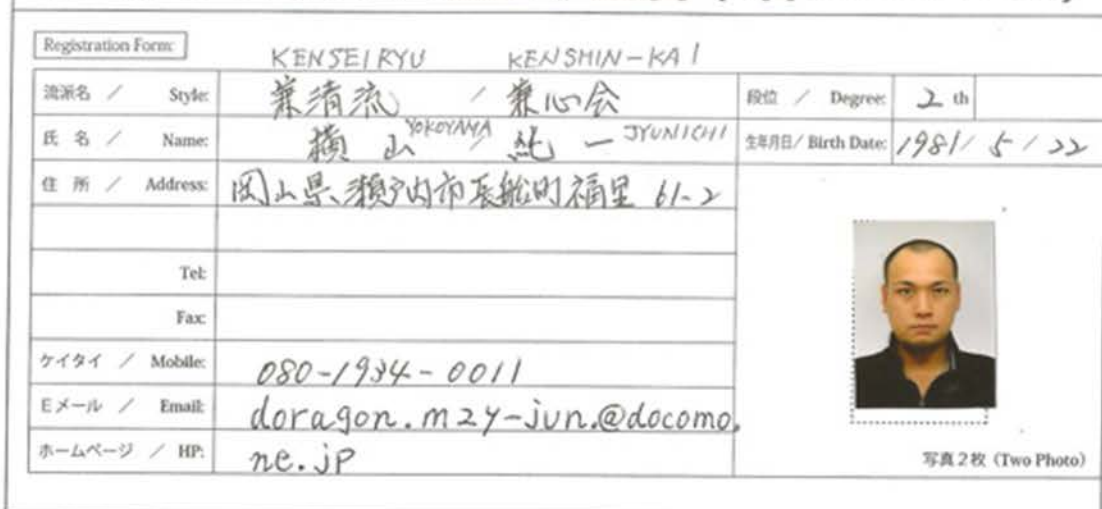 Registration Form:
KENSEIRYU KENSHIN-KAI
流派名 / Style: 兼清流 / 兼心会
段位 / Degree: 2 th
YOKOYAMA JYUNICHI
氏 名 / Name: 横山 / 純一
生年月日/ Birth Date: 1981 / 5 / 22
住 所 / Address: 岡山県瀬戸内市長船町福里 61-2
Tel:
Fax:
ケイタイ / Mobile: 080-1934-0011
Eメール / Email: doragon.m24-jun.@docomo.
ホームページ / HP: ne.jp
写真2枚 (Two Photo)